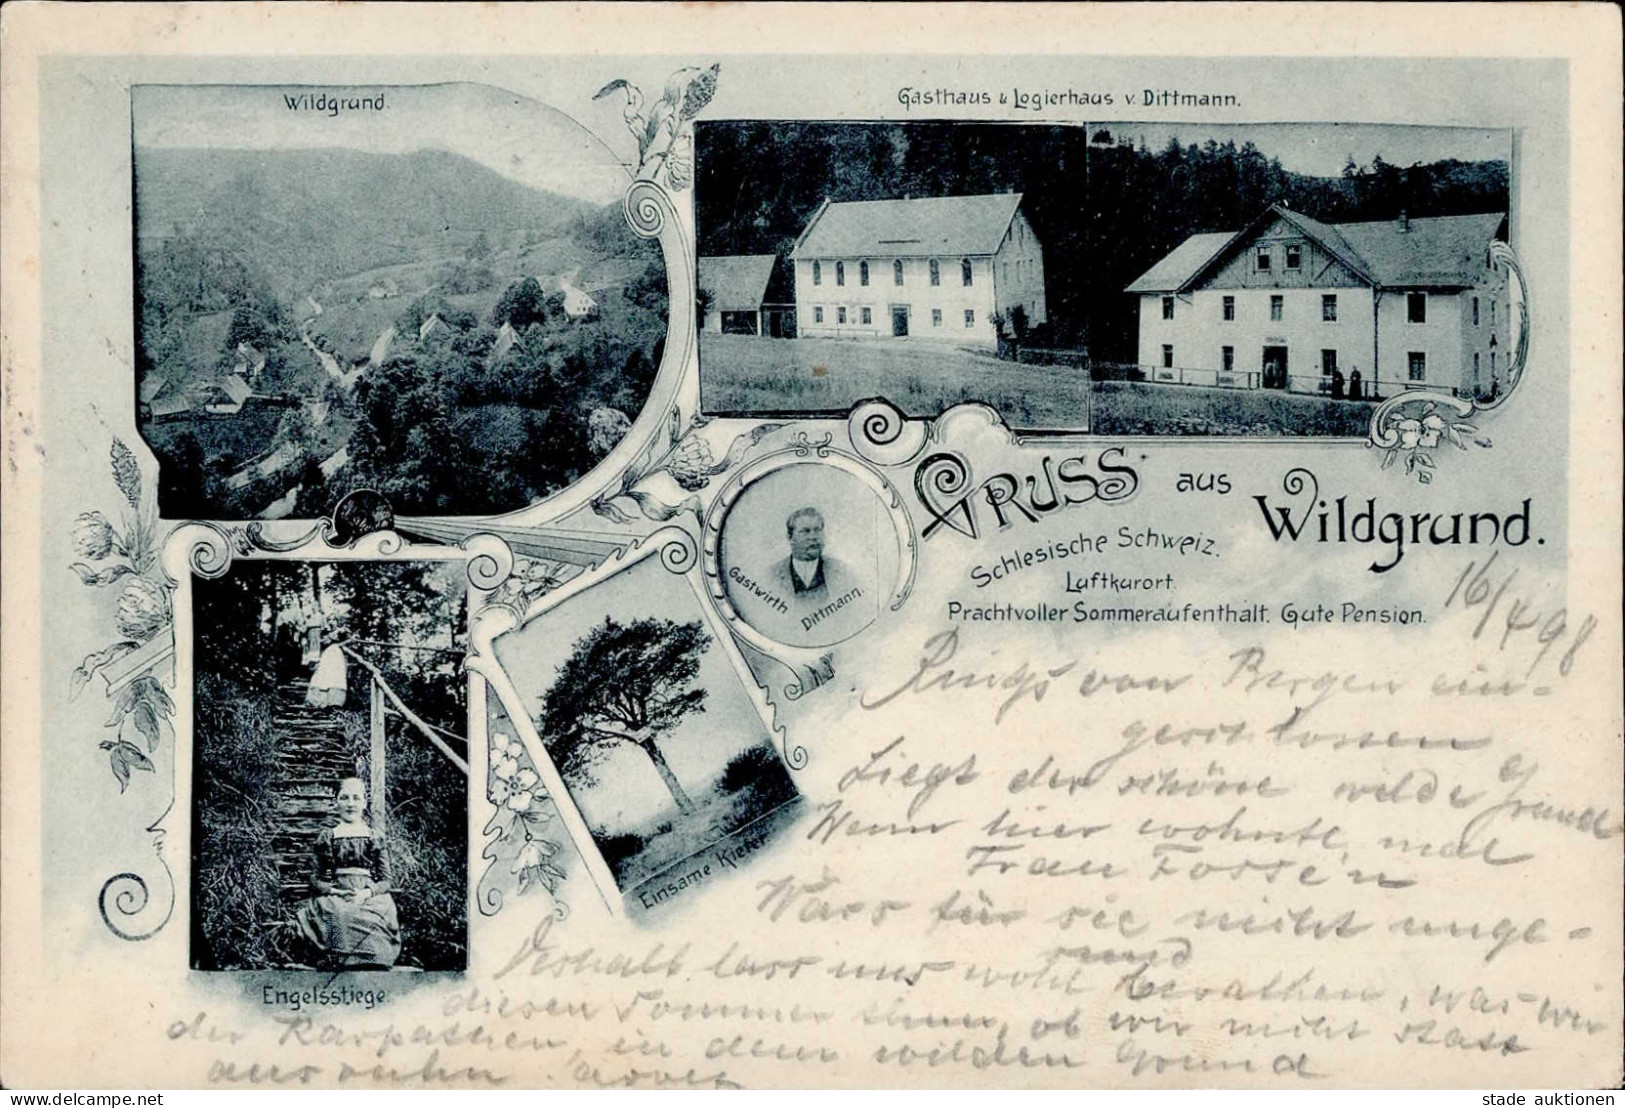 Wildgrund.
Gasthaus & Logierhaus v. Dittmann.
Gruss aus Wildgrund.
Schlesische Schweiz.
Luftkurort.
Prachtvoller Sommeraufenthalt. Gute Pension.
Gastwirth Dittmann.
Einsame Kiefer.
Engelsstiege.
16/4 98
Rings von Bergen ein-
geschlossen
Liegt der schöne wilde Grund
Wenn hier wohnte, mal
Frau
Wärs für sie nicht unge-
sund
Deshalb lass uns wohl berathen, was wir
diesen Sommer thun, ob wir nicht statt
der Karpathen, in dem wilden Grund
ausruhn.
www.delcampe.net
stade auktionen